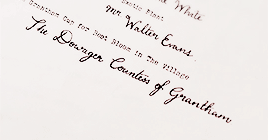 White
Mr Walter Evans
Grantham Cup for Best Bloom in The Village
The Dowager Countess of Grantham